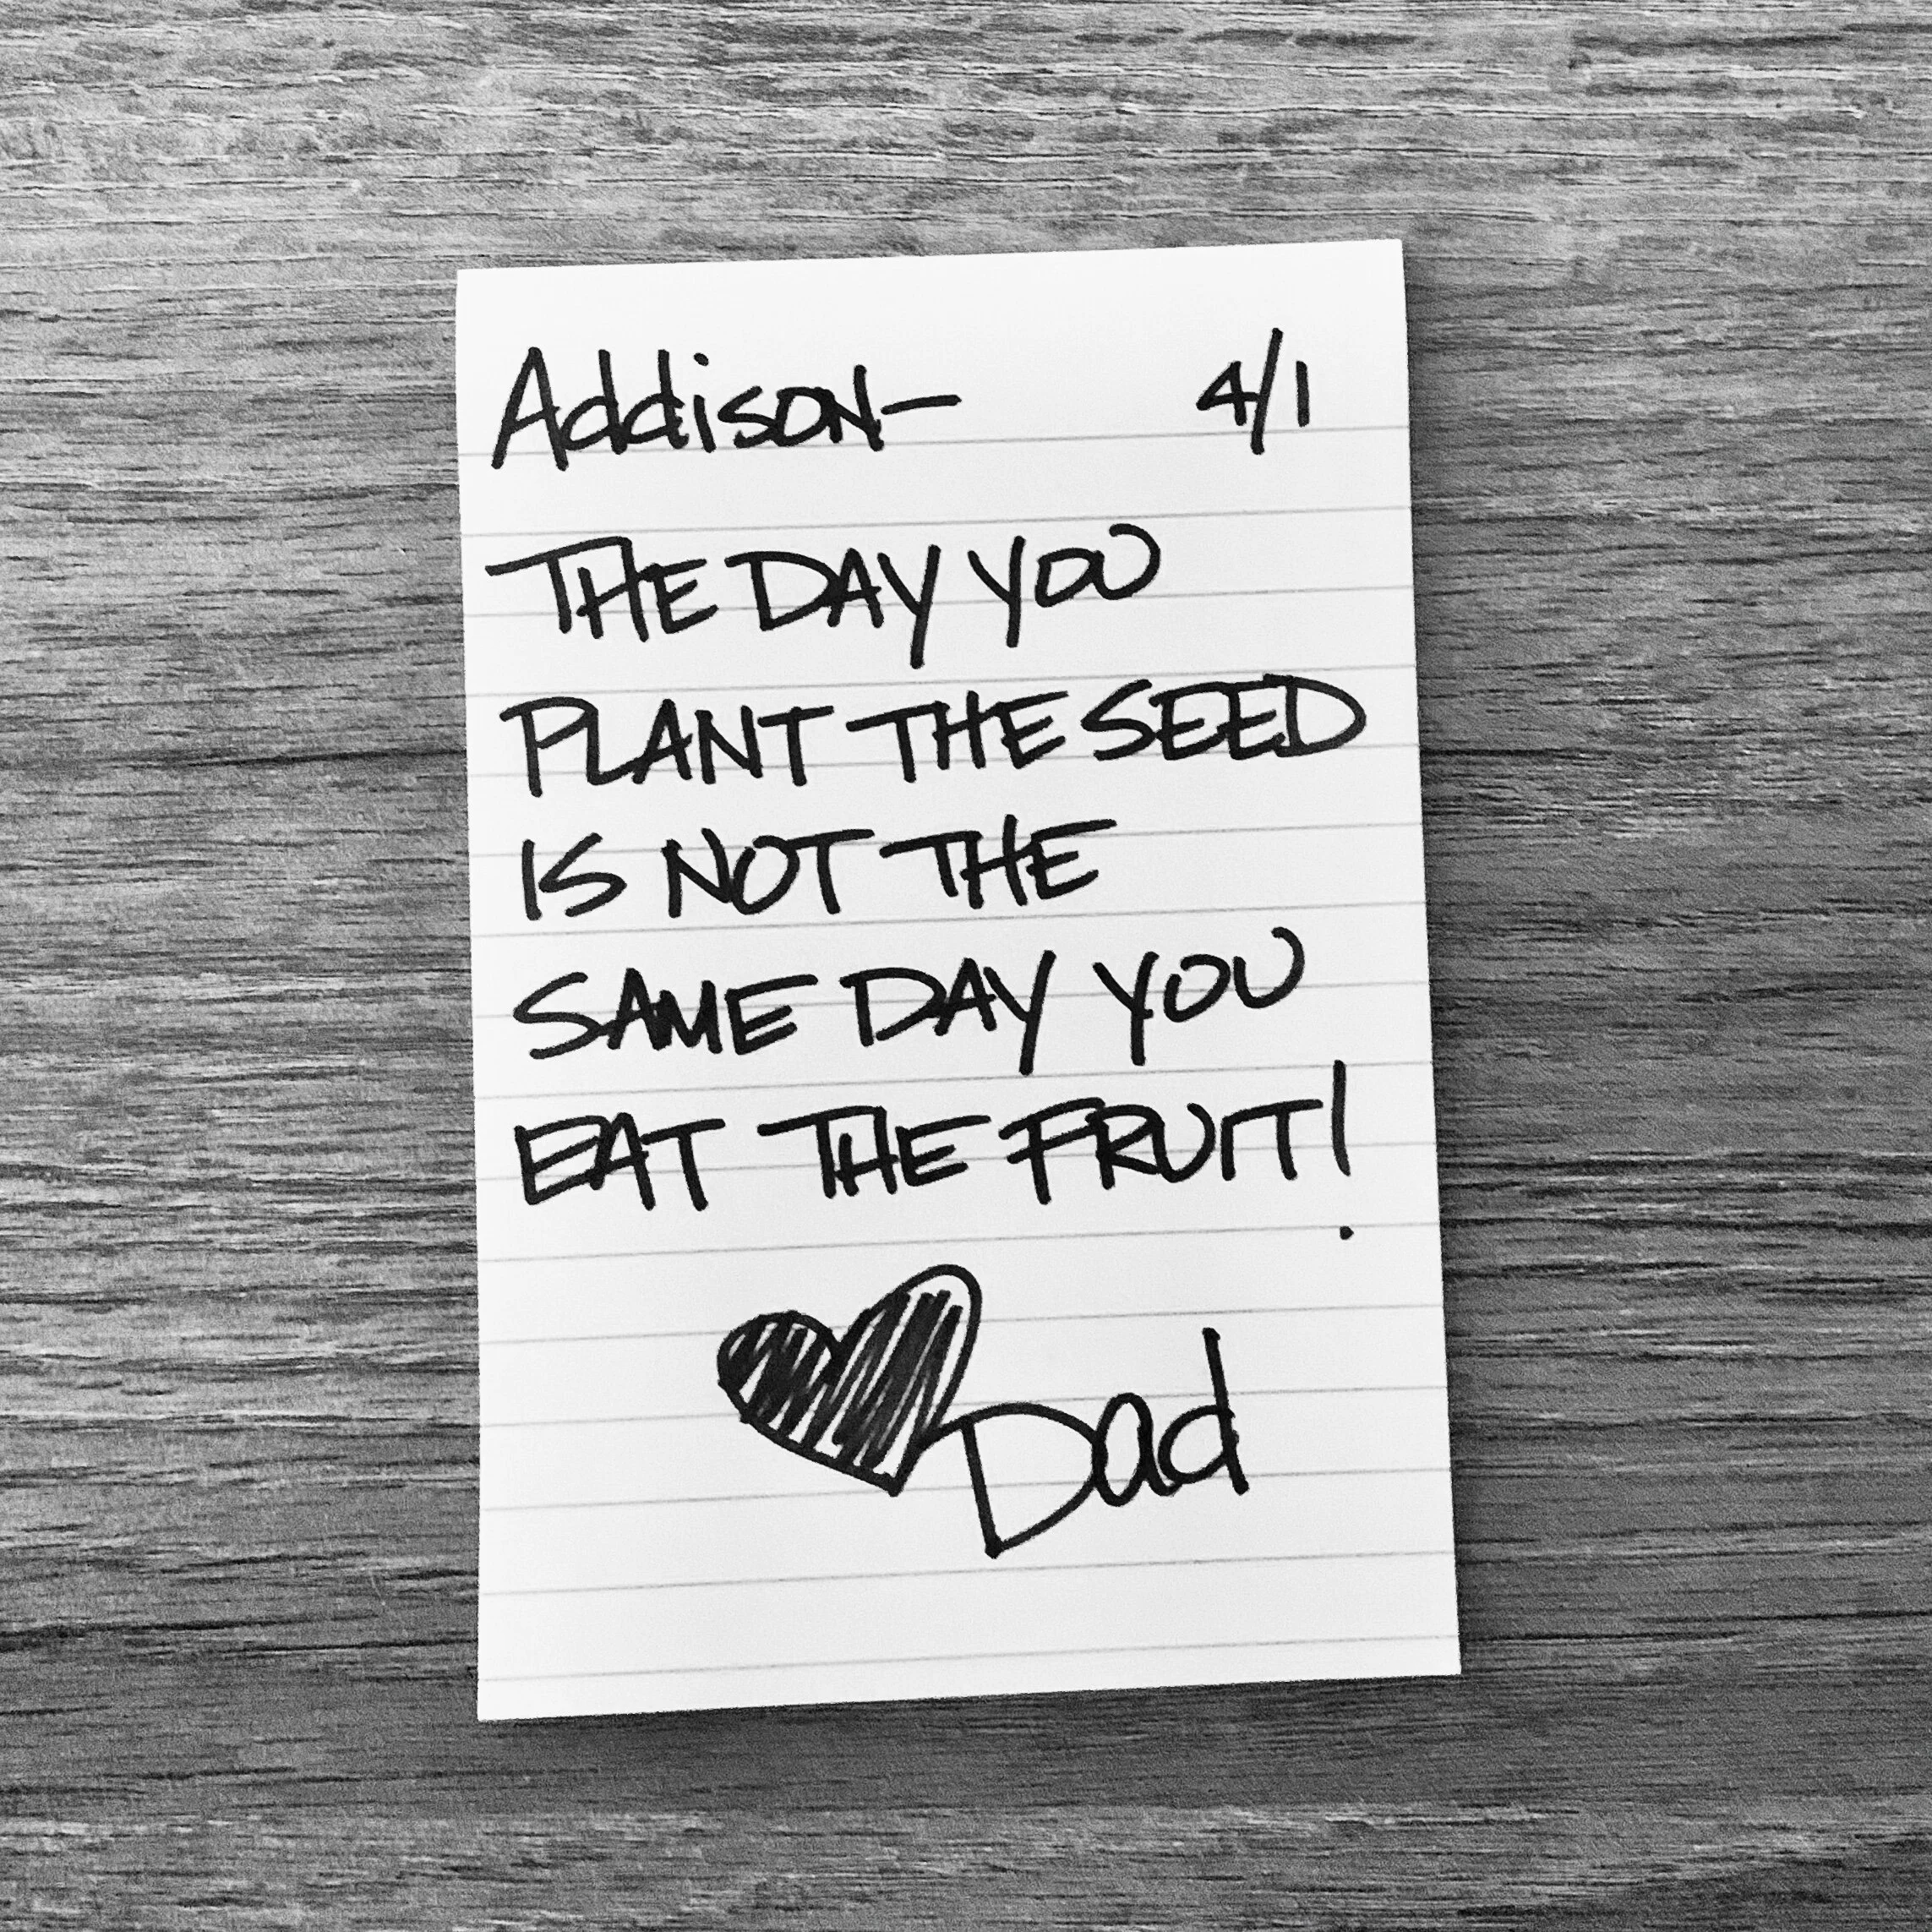 Addison— 4/1
THE DAY YOU
PLANT THE SEED
IS NOT THE
SAME DAY YOU
EAT THE FRUIT!
Dad